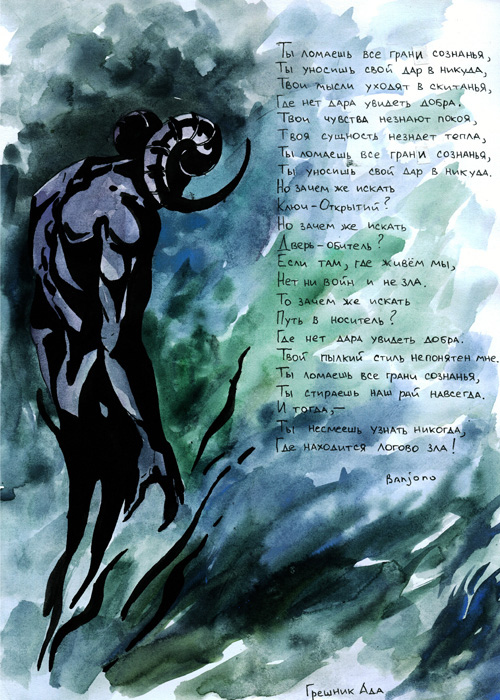 Ты ломаешь все грани сознанья,
Ты уносишь свой дар в никуда,
Твои мысли уходят в скитанья,
Где нет дара увидеть добра.
Твои чувства незнают покоя,
Твоя сущность незнает тепла,
Ты ломаешь все грани сознанья,
Ты уносишь свой дар в никуда.
Но зачем же искать
Ключ-Открытий?
Но зачем же искать
Дверь-обитель?
Если там, где живём мы,
Нет ни войн и не зла.
То зачем же искать
Путь в носитель?
Где нет дара увидеть добра.
Твой пылкий стиль непонятен мне.
Ты ломаешь все грани сознанья,
Ты стираешь наш рай навсегда.
И тогда,–
Ты несмеешь узнать никогда,
Где находится логово зла!
Banjono
Грешник Ада